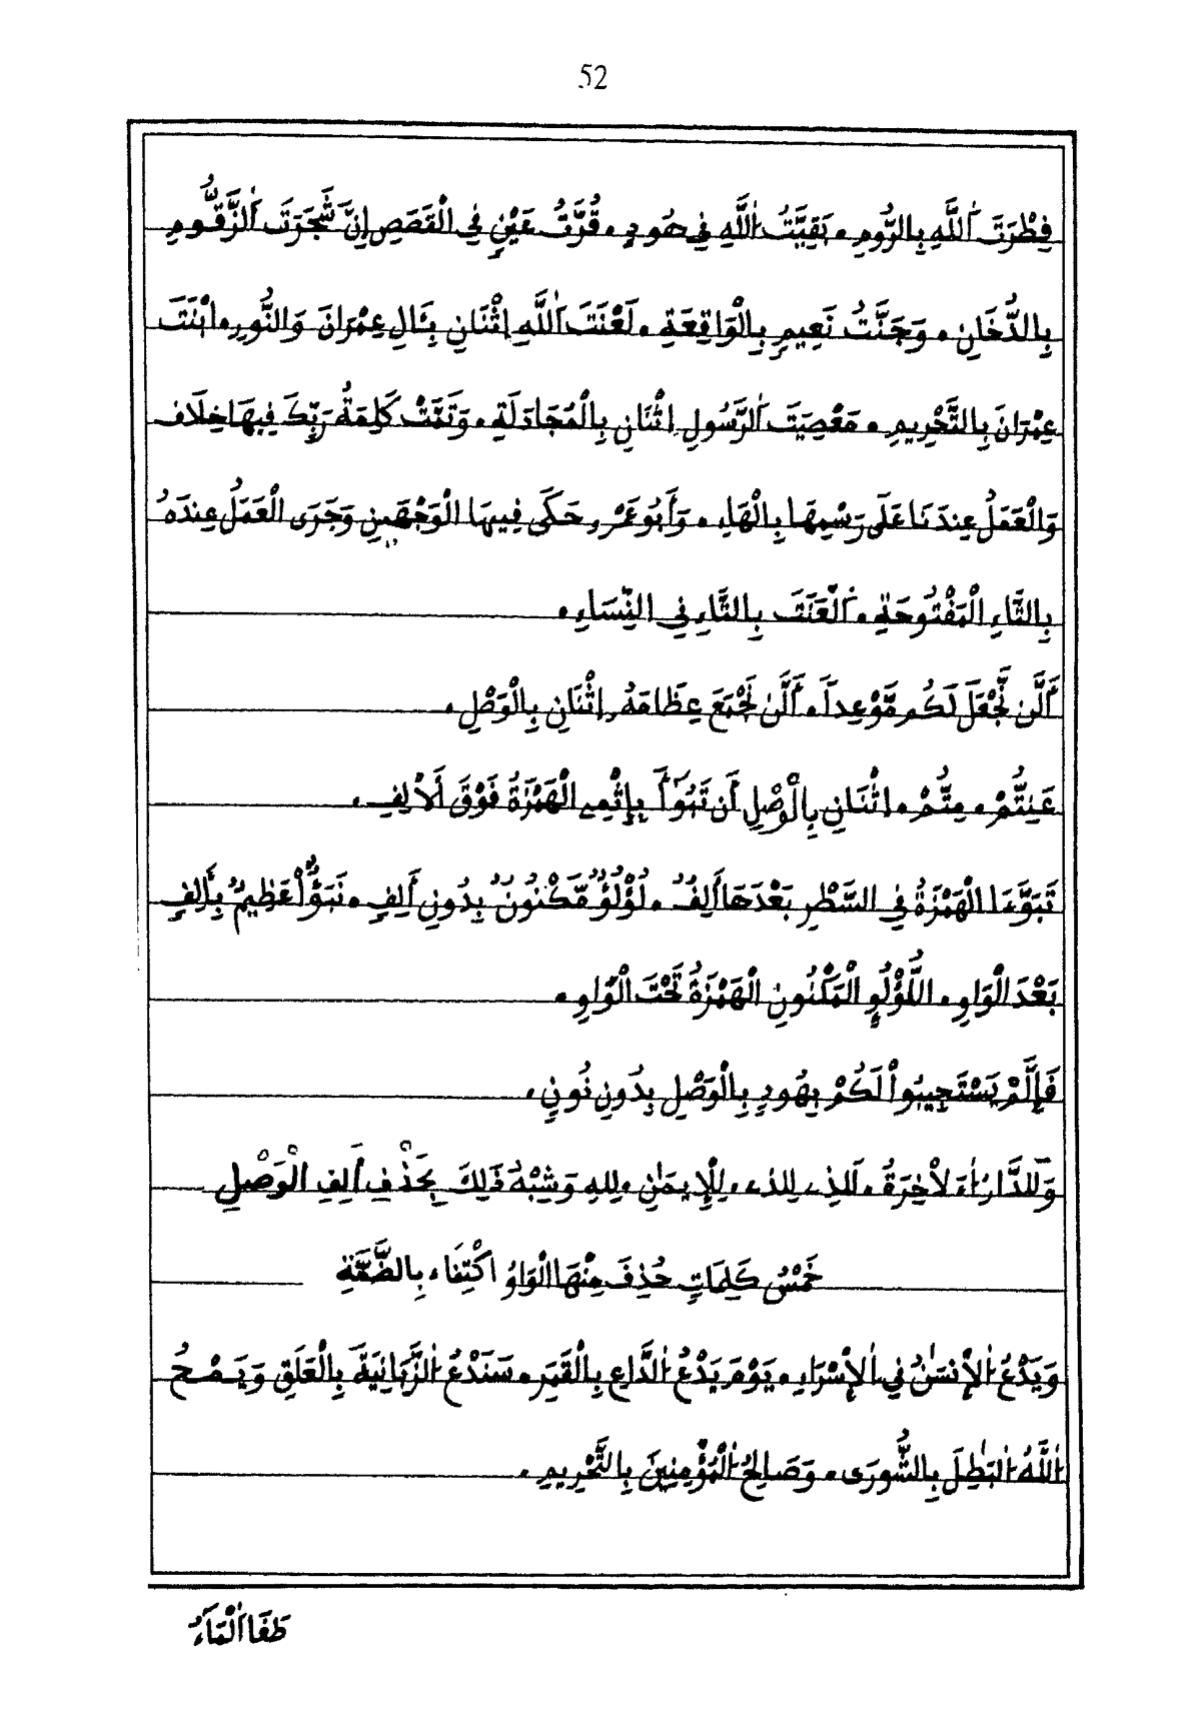 52
فِطْرَتَ اَللَّهِ بِالرُّومِ. بَقِيَّتُ اُللَّهِ فِي هُودٍ. قُرَّتُ عَيْنٍ فِي الْقَصَصِ إِنَّ شَجَرَتَ اَلزَّقُّومِ
بِالدُّخَانِ. وَجَنَّتُ نَعِيمٍ بِالْوَاقِعَةِ. لَعْنَتَ اَللَّهِ اِثْنَانِ بِـَٔالِ عِمْرَانَ وَالنُّورِ. ابْنَتَ
عِمْرَانَ بِالتَّحْرِيمِ. مَعْصِيَتَ اَلرَّسُولِ اِثْنَانِ بِالْمُجَادَلَةِ. وَتَمَّتْ كَلِمَةُ رَبِّكَ فِيهَا خِلَاف
وَالْعَمَلُ عِندَنَا عَلَى رَسْمِهَا بِالْهَاءِ. وَأَبُو عَمْرٍو حَكَى فِيهَا الْوَجْهَيْنِ وَجَرَى الْعَمَلُ عِندَهُ
بِالتَّاءِ الْمَفْتُوحَةِ. اَلْعَنَتَ بِالتَّاءِ فِي النِّسَاءِ.
أَلَّن نَّجْعَلَ لَكُم مَّوْعِداً. أَلَّن نَّجْمَعَ عِظَامَهُ اِثْنَانِ بِالْوَصْلِ.
عَنِتُّمْ. مِتُّمْ. اثْنَانِ بِالْوَصْلِ أَن تَبُوٓأَ بِإِثْمِے الْهَمْزَةُ فَوْقَ أَلْاَلِفِ.
تَبَوَّءَا الْهَمْزَةُ فِي السَّطْرِ بَعْدَهَا أَلِفٌ. لُؤْلُؤٌ مَّكْنُونٌ بِدُونِ أَلِفٍ. نَبَؤٌاْ عَظِيمٌ بِأَلِفٍ
بَعْدَ الْوَاوِ. اللُّؤْلُوِٕ الْمَكْنُونِ الْهَمْزَةُ تَحْتَ الْوَاوِ.
فَإِلَّمْ يَسْتَجِيبُواْ لَكُمْ بِهُودٍ بِالْوَصْلِ بِدُونِ نُونٍ.
وَلَلدَّارُ اَءَلَاخِرَةُ. لَلذِے لِلذِے. لِلْإِيمَٰنِ. لِلهِ وَشِبْهُ ذَلِكَ بِحَذْفِ أَلِفِ الْوَصْلِ
خَمْسُ كَلِمَاتٍ حُذِفَ مِنْهَا الْوَاوُ اكْتِفَاءً بِالضَّمَّةِ
وَيَدْعُ اُلْإِنسَٰنُ فِي اَلْإِسْرَاءِ. يَوْمَ يَدْعُ اُلدَّاعِ بِالْقَمَرِ. سَنَدْعُ اُلزَّبَانِيَةَ بِالْعَلَقِ وَيَمْحُ
اُللَّهُ اُلْبَٰطِلَ بِالشُّورَى. وَصَالِحُ اُلْمُؤْمِنِينَ بِالتَّحْرِيمِ.
طَغَا اَلْمَآءُ